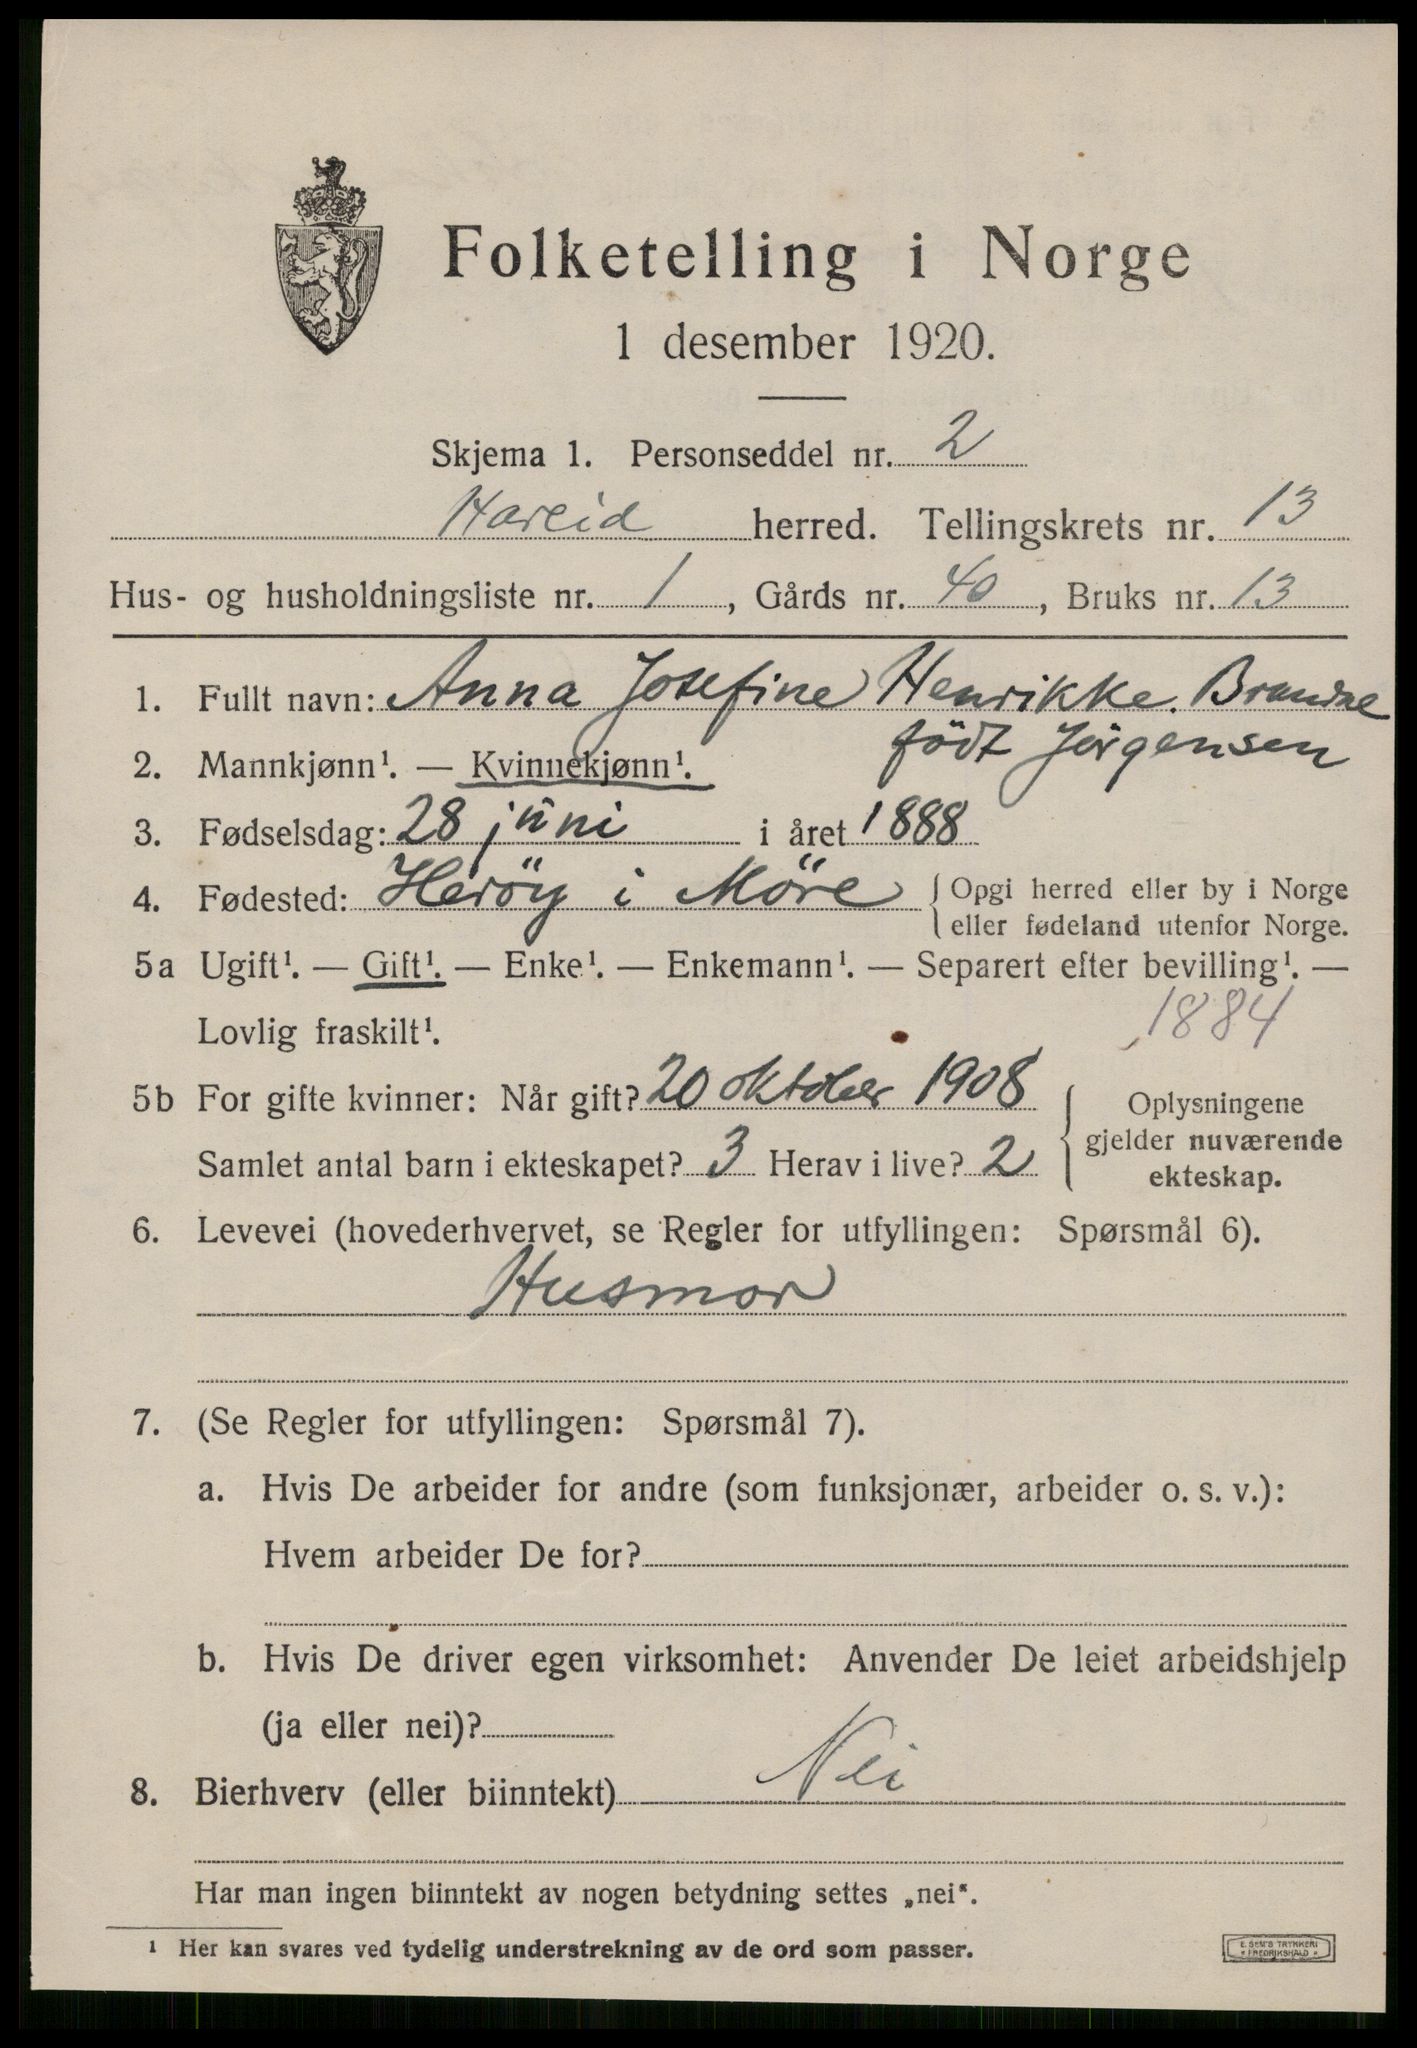 Folketelling i Norge
1 desember 1920.
Skjema 1. Personseddel nr. 2
Hareid herred. Tellingskrets nr. 13
Hus- og husholdningsliste nr. 1, Gårds nr. 40, Bruks nr. 13
1. Fullt navn: Anna Josefine Henrikke.
födt Jörgensen
2. Mannkjønn¹. — Kvinnekjønn¹.
3. Fødselsdag: 28 juni i året 1888
4. Fødested: Heröy i Möre { Opgi herred eller by i Norge
eller fødeland utenfor Norge.
5a Ugift¹. — Gift¹. — Enke¹. — Enkemann¹. — Separert efter bevilling¹. —
Lovlig fraskilt¹. 1884
5b For gifte kvinner: Når gift? 20 oktober 1908
Samlet antal barn i ekteskapet? 3 Herav i live? 2
{ Oplysningene
gjelder nuværende
ekteskap.
6. Levevei (hovederhvervet, se Regler for utfyllingen: Spørsmål 6).
Husmor
7. (Se Regler for utfyllingen: Spørsmål 7).
a. Hvis De arbeider for andre (som funksjonær, arbeider o. s. v.):
Hvem arbeider De for?
b. Hvis De driver egen virksomhet: Anvender De leiet arbeidshjelp
(ja eller nei)?
8. Bierhverv (eller biinntekt) Nei
Har man ingen biinntekt av nogen betydning settes „nei“.
¹ Her kan svares ved tydelig understrekning av de ord som passer.
E. SEM'S TRYKKERI
FREDRIKSHALD